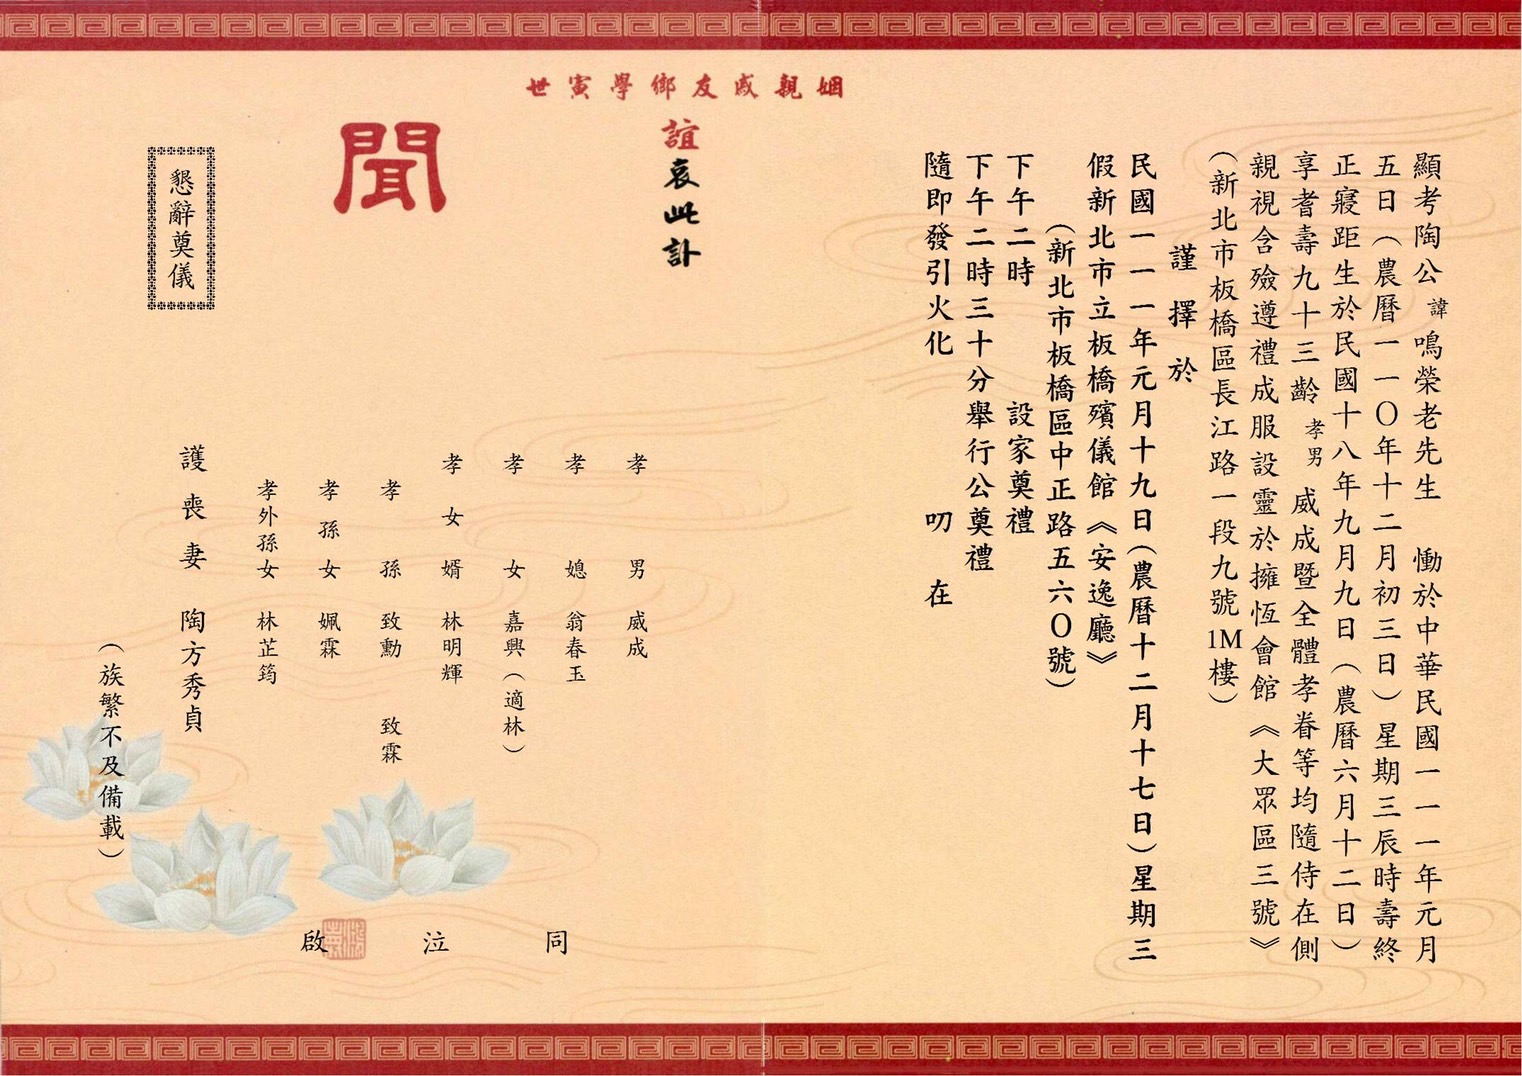 顯考陶公諱鳴榮老先生 慟於中華民國一一一年元月
五日（農曆一一〇年十二月初三日）星期三辰時壽終
正寢距生於民國十八年九月九日（農曆六月十二日）
享耆壽九十三齡 孝男 威成暨全體孝眷等均隨侍在側
親視含殮遵禮成服設靈於擁恆會館《大眾區三號》
（新北市板橋區長江路一段九號1M樓）
謹擇於
民國一一一年元月十九日（農曆十二月十七日）星期三
假新北市立板橋殯儀館《安逸廳》
（新北市板橋區中正路五六〇號）
下午二時 設家奠禮
下午二時三十分舉行公奠禮
隨即發引火化 叨在
姻親戚友鄉學寅世
誼哀此訃
聞
孝男 威成
孝媳 翁春玉
孝女 嘉興（適林）
孝女婿 林明輝
孝孫 致勳 致霖
孝孫女 姵霖
孝外孫女 林芷筠
護喪妻 陶方秀貞
（族繁不及備載）
同泣啟
懇辭奠儀